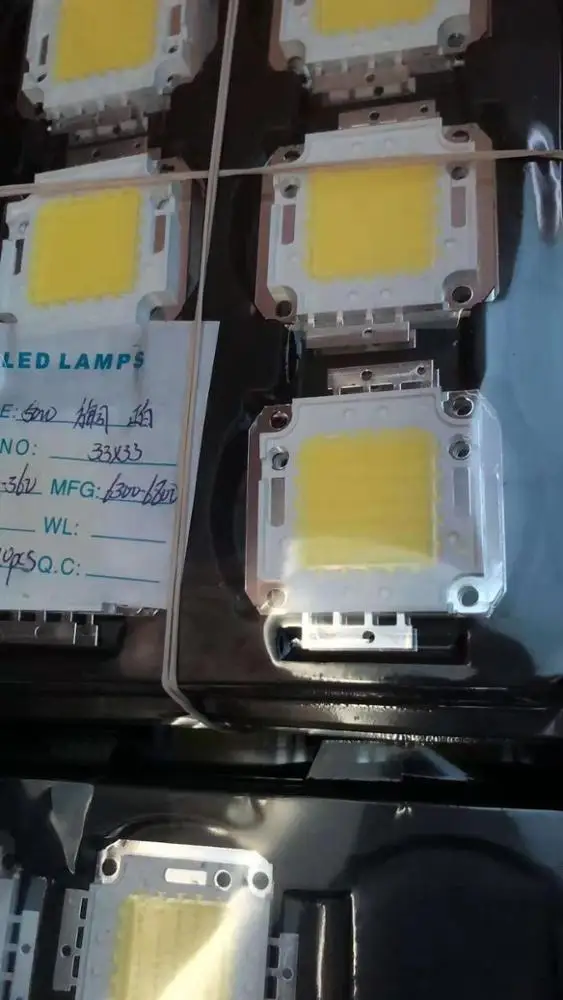 LED LAMPS
E: 50W 铜 正白
NO: 33X33
-36V MFG: 6300-6800
WL:
0pcs Q.C: